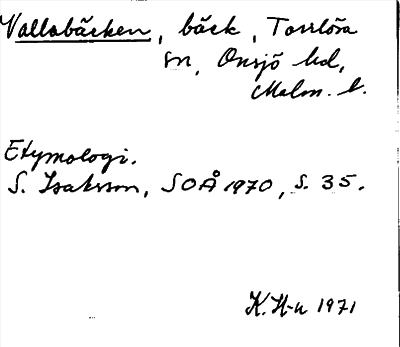 Vallabäcken, bäck, Torrlösa
sn, Onsjö hd,
Malm. l.
Etymologi.
S. Isaksson, SOÅ 1970, s. 35.
K. H-n 1971